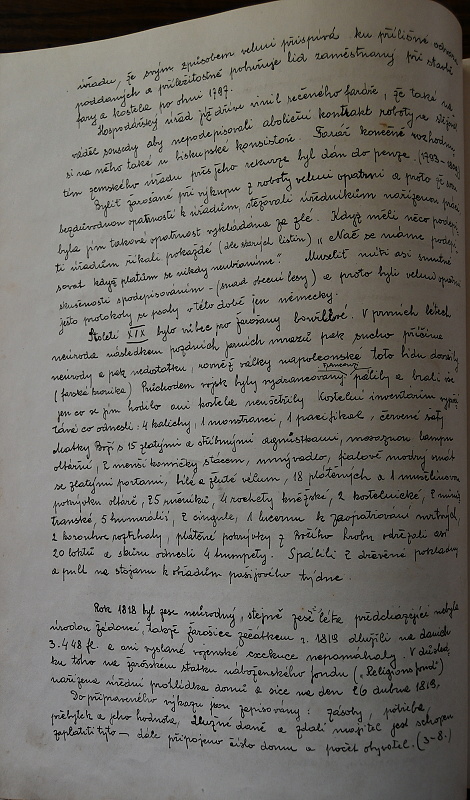 úřadu, že svým způsobem velmi přispívá ku přílišné odvaze
poddaných a příležitostně pobuřuje lid zaměstnaný při stavbě
fary a kostela po ohni 1797.
Hospodářský úřad již dříve vinil řečeného faráře, že také na-
váděl sousedy aby nepodepisovali aboliční kontrakt roboty a stěžoval
si na něho také u biskupské konsistoře. Farář konečně rozhodnu-
tím zemského úřadu přes jeho rekurze byl dán do penze. (1793 –
Byliť Žarošané při výkupu z roboty velmi opatrní a proto že
bezdůvodnou opatrností k úřadům, stěžovali úředníkům nařízenou práci
byla jim taková opatrnost vykládána za zlé. Když měli něco podepsa-
ti úřadům říkali pokaždé (dle starých listin) „Nač se máme podepi-
sovat když platům se nikdy neubráníme" Museliť míti asi smutné
zkušenosti s podepisováním – (snad obecní lesy) a proto byli velmi opatrní
ježto protokoly se psaly v této době jen německy.
Století XIX bylo vůbec pro Žarošany bouřlivé. V prvních létech
neúroda následkem pozdních jarních mrazů pak sucho příčina
neúrody a pak nedostatku, rovněž války napoleonské toho lidu dorážely
(farská kronika) Průchodem vojsk byly vydrancovány Francouzi pálily a brali vše
jen co se jim hodilo ani kostela neušetřily Kostelní inventárium vypočí-
tává co odnesli: 4 kalichy, 1 monstranci, 1 pacifikal, červené šaty
Matky Boží s 15 zlatými a stříbrnými agnuškami, mosaznou lampu
oltářní, 2 menší konvičky s tácem, umývadlo, fialově modrý ornát
se zlatými portami, bílé a žluté vélum, 18 plátěných a 1 mušelínovou
pokrývku oltáře, 25 ručníků, 4 rochety kněžské, 2 kostelnické, 2 minis-
trantské, 5 humerálů, 2 cingule, 1 lucernu k zaopatřování mrtvých,
2 korouhve roztrhaly, plátěné pokrývky z Božího hrobu odřezali asi
20 loktů a sbírku odnesli 4 trumpety. Spálili 2 dřevěné pokladny
a pult na stojanu k obřadům pašijového týdne.
Rok 1818 byl zase neúrodný, stejně jest léta předcházející nebyla
úrodou žádoucí, takže Žarošice začátkem r. 1819 dlužili na daních
3.448 fl. a ani vyslané vojenské exekuce nepomáhaly. V důsled-
ku toho na žarošském statku náboženského fondu („Religionsfond")
nařízena úřední prohlídka domů a sice na den 26 dubna 1819.
Do připraveného výkazu jsou zapisovány: zásoby, potřeba,
přebytek a jeho hodnota, dlužné daně a zdali majitel jest schopen
zaplatiti tyto – dále připojeno číslo domu a počet obyvatel. (3–8.)